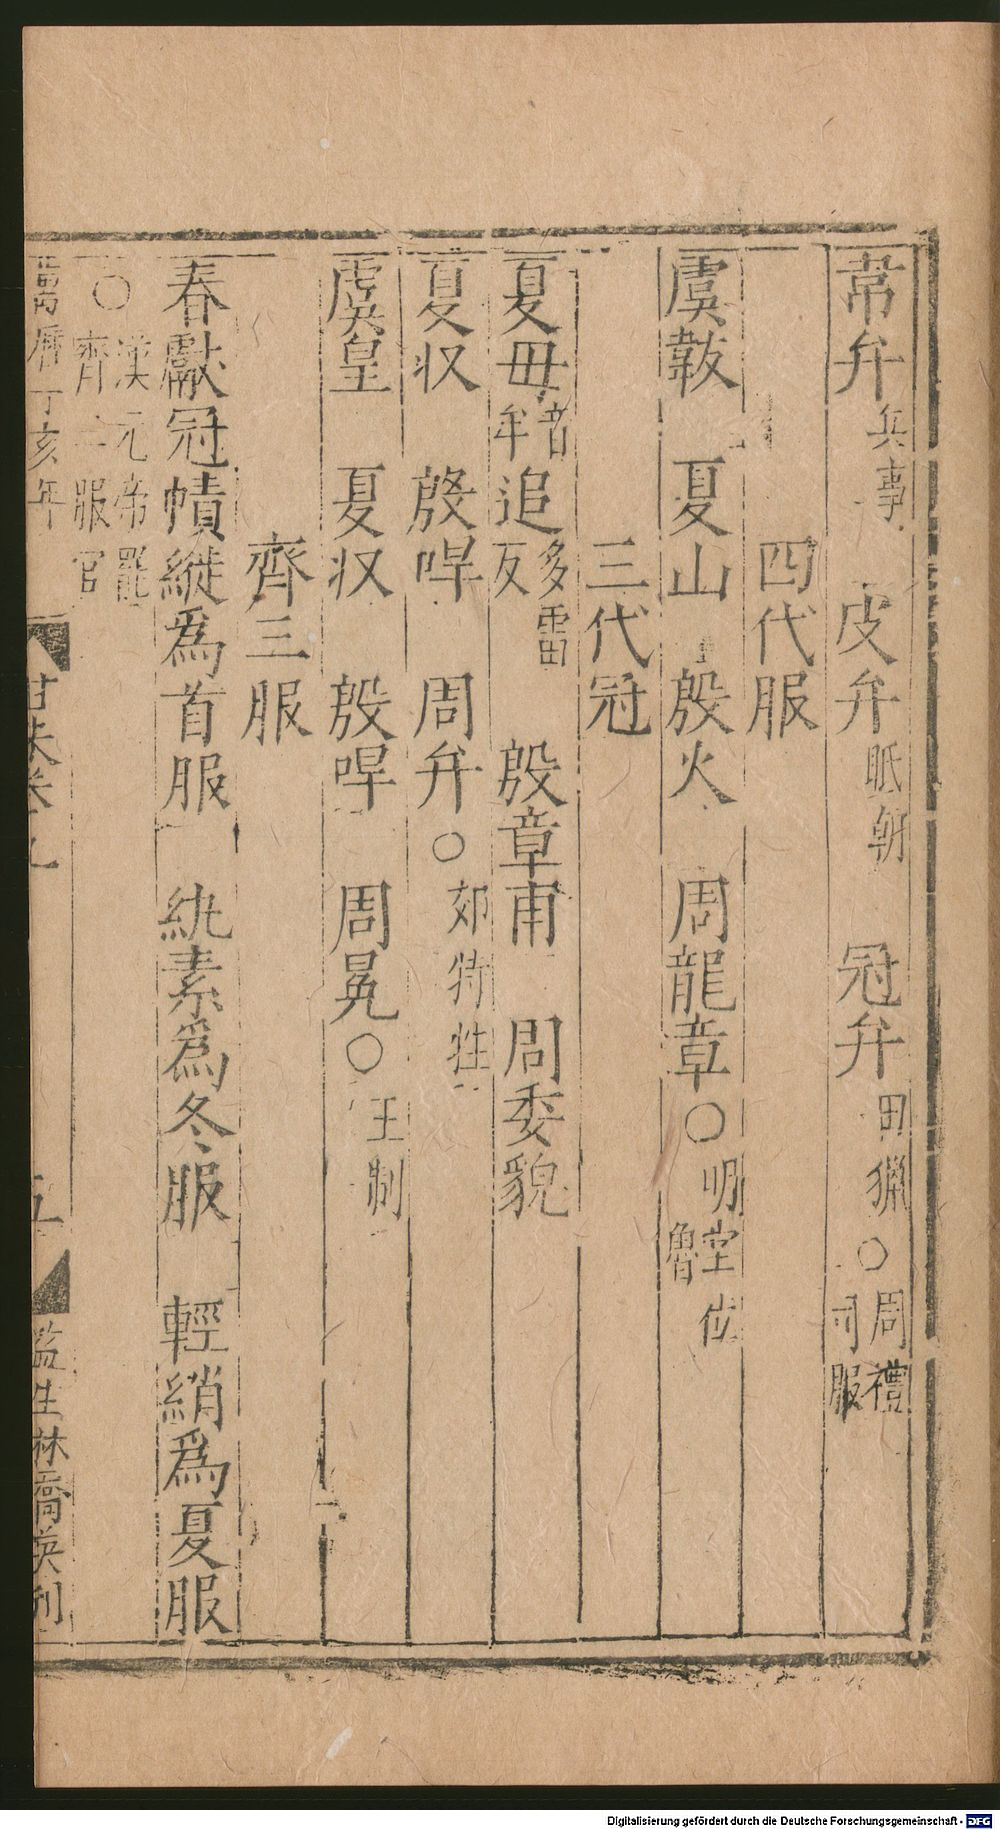 韋弁兵事 皮弁眡朝 冠弁田獵○周禮司服
四代服
虞韍 夏山 殷火 周龍章○明堂位魯
三代冠
夏毋音牟追多雷反 殷章甫 周委貌
夏收 殷哻 周弁○郊特牲
虞皇 夏收 殷哻 周冕○王制
齊三服
春獻冠幘縰爲首服 紈素爲冬服 輕綃爲夏服
○漢元帝罷齊三服官
萬曆丁亥年 五 監生林喬英刊
Digitalisierung gefördert durch die Deutsche Forschungsgemeinschaft - DFG